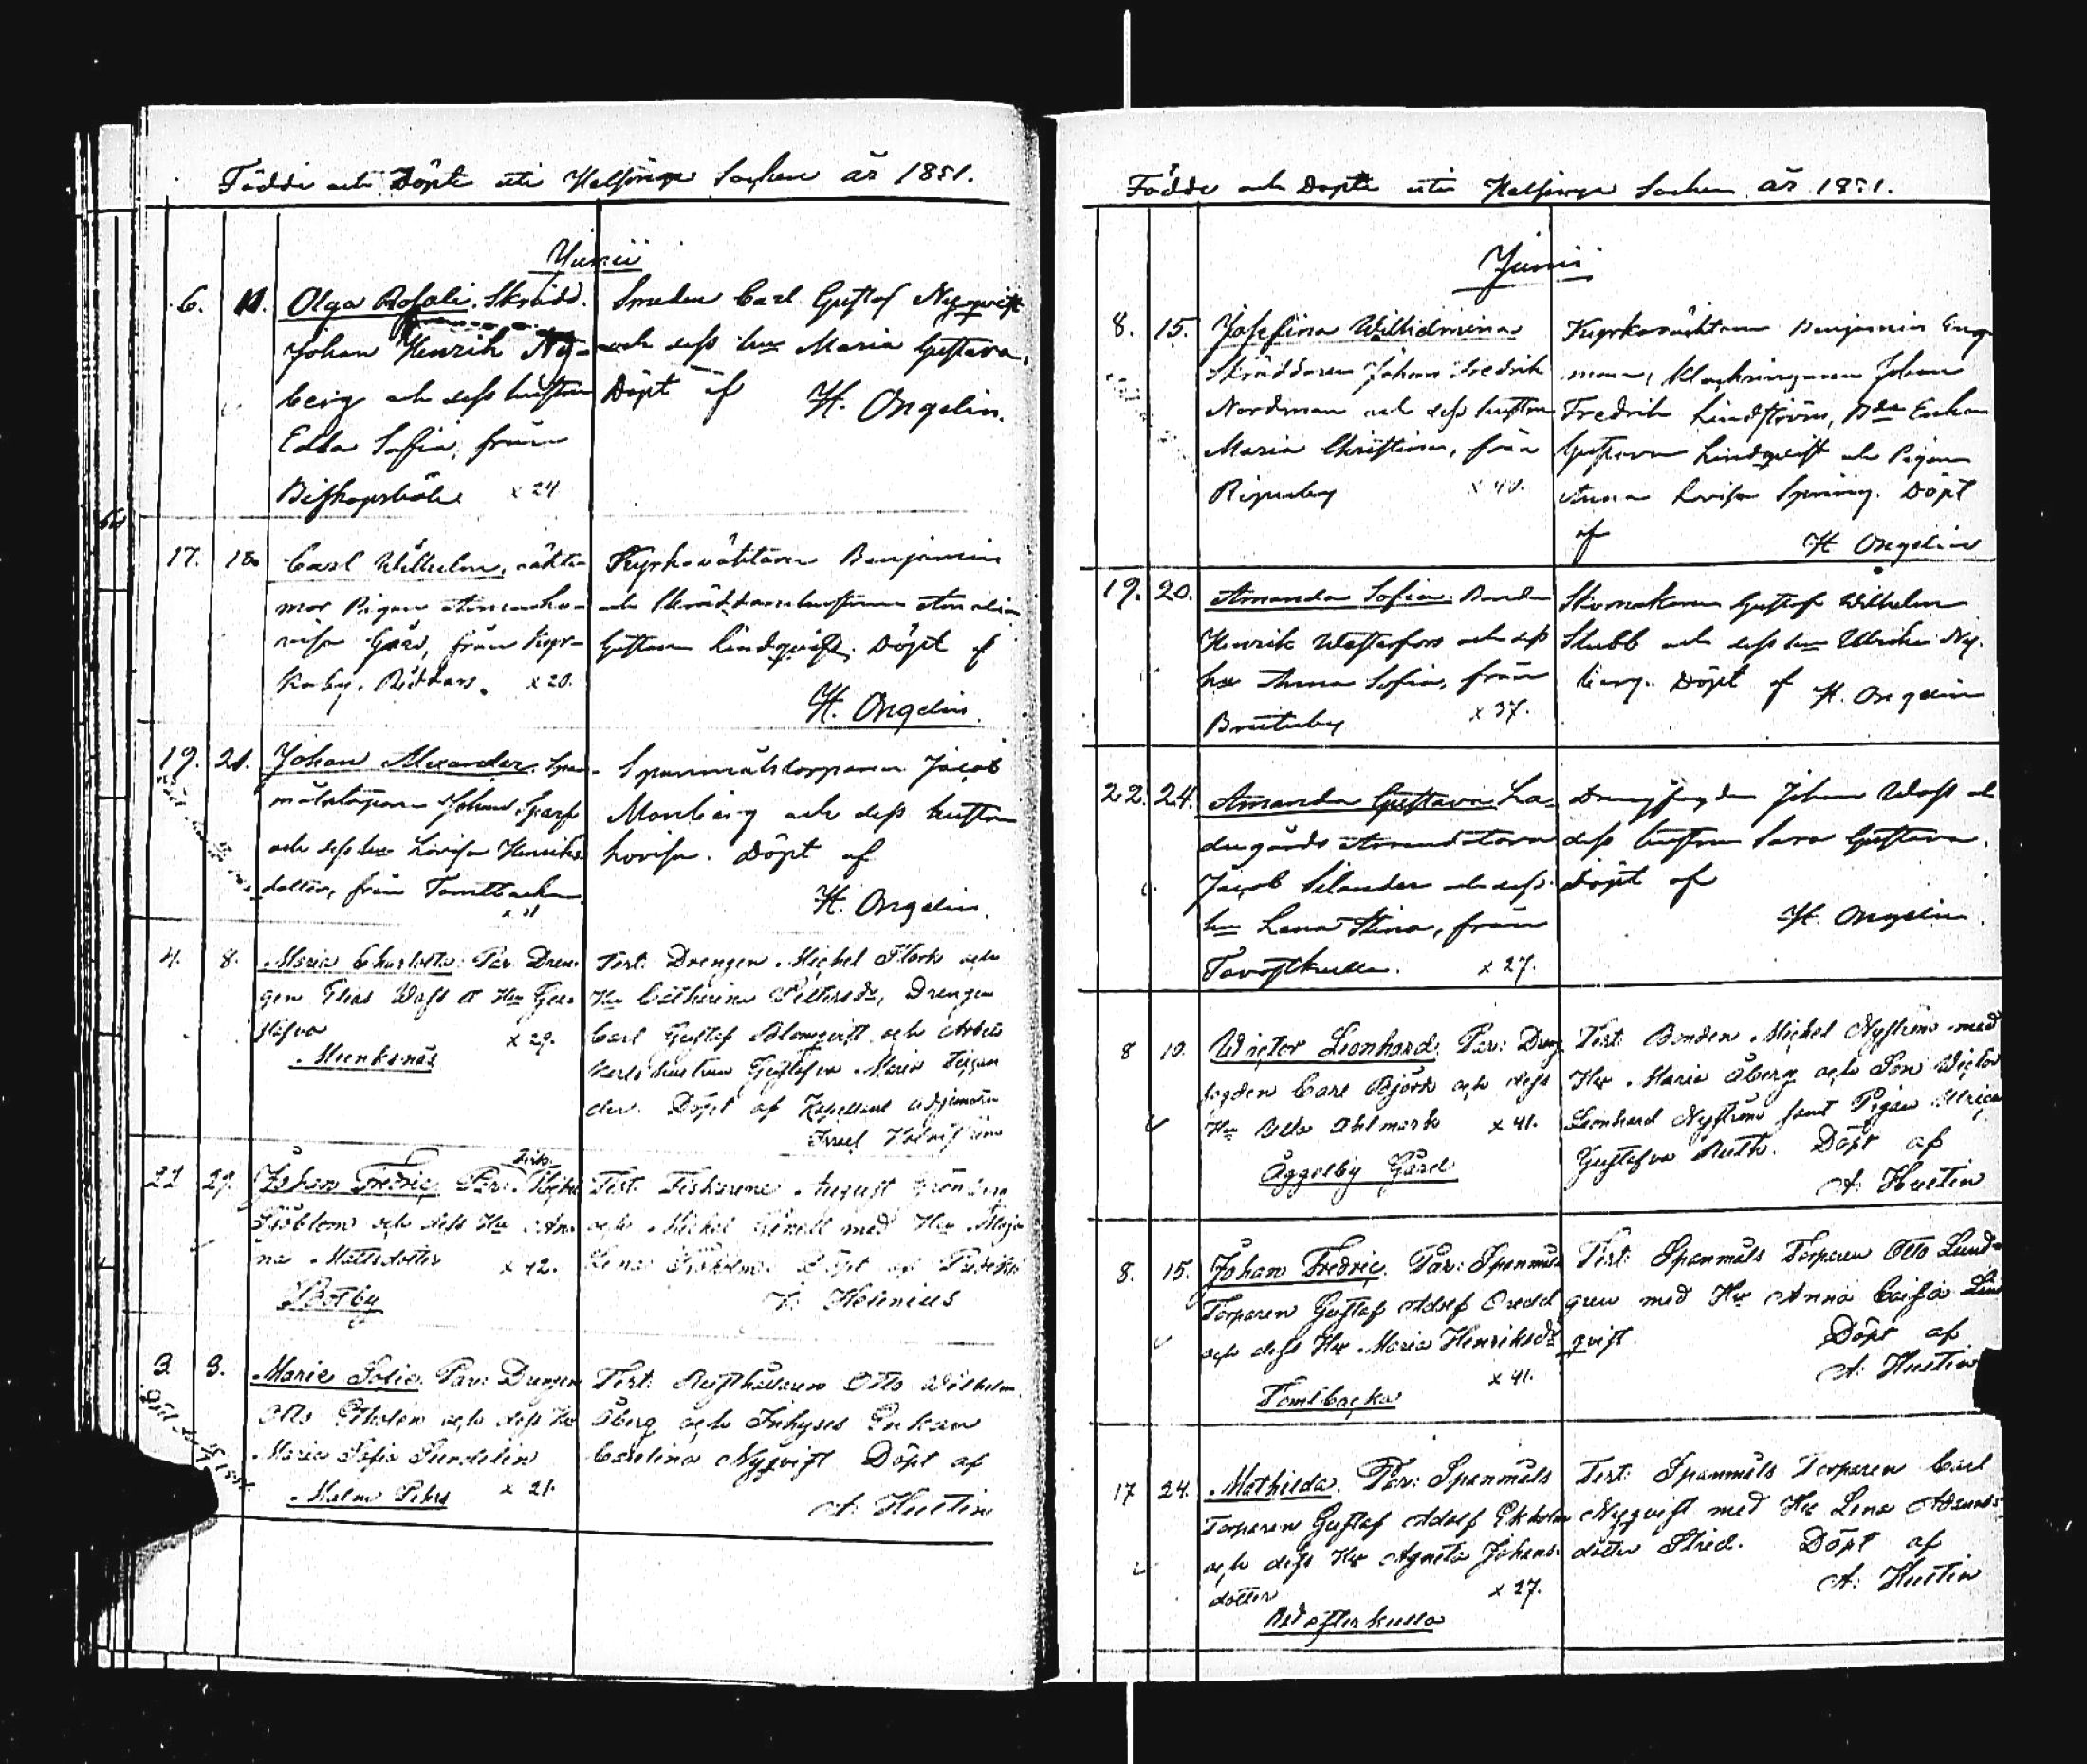 Födde och Döpte uti Helsinge Sochen år 1851.
Junii
6. 11. Olga Rosali. Skrädd.
Johan Henrik Ny-
berg och dess hustru
Edla Sofia, från
Biskopsböle x 24
Smeden Carl Gustaf Nyqvist
och dess hu Maria Gustava.
Döpt af H. Ongelin.
17. 18 Carl Wilhelm, oäkta
mor Pigan Anna Lo-
visa Gård, från Kyr-
koby, Riddars. x 20.
Kyrkoväktaren Benjamin
och Skräddarehustrun Amalia
Gustava Lindqvist. Döpt af
H. Ongelin.
19. 21. Johan Alexander. Span-
målstorparen Johan Sparf
och dess hu Lovisa Henriks-
dotter, från Tomtbacka
Spanmålstorparen Jacob
Monberg och dess hustru
Lovisa. Döpt af
H. Ongelin.
4. 8. Maria Charlotta: Par: Dren-
gen Elias Wass o Hu Gu-
stafva x 29.
Munksnäs
Test: Drengen Michel Flork och
Hu Catharina Pettersdr, Drengen
Carl Gustaf Blomqvist och Arbets
karls hustrun Gustafva Maria
Döpt af Kapellans adjuncten
Israel Holmström
22 29. Johan Fredric. Par: Fisk. Michel
Sjöblom och dess Hu An-
na Mattsdotter x 42.
Botby
Test: Fiskarene August Grönberg
och Michel Genell med Hu Maja
Lena Döpt af
Helenius
3 3. Marie Sofie. Par: Drengen
Otto Ekholm och dess Hu
Maria Sofia Sundelin
Malm Pehrs x 21.
Test: Rusthållaren Otto Wilhelm
Åberg och Inhyses Enkan
Carolina Nyqvist Döpt af
A: Hustin
Födde och Döpte uti Helsinge Sochen år 1851.
Junii
8. 15. Josefina Wilhelmina
Skräddaren Johan Fredrik
Nordman och dess hustru
Maria Christina, från
x 40.
Kyrkoväktaren Benjamin Eng-
man, Klockringaren Johan
Fredrik Lindström, Enkan
Gustava Lindqvist och Pigan
Anna Lovisa Döpt
af H. Ongelin
19. 20. Amanda Sofia. Bonden
Henrik Westerfors och dess
hu Anna Sofia, från
x 37.
Skomakaren Gustaf Wilhelm
Stubb och dess hu Ulrika Ny-
berg. Döpt af H. Ongelin
22. 24. Amanda Gustava La-
dugårds Arrendatorn
Jacob Silander och dess
hu Lena Stina, från
Tavastkulla. x 27.
Drengfogden Johan Wass och
dess hustru Sara Gustava.
Döpt af
H. Ongelin.
8 10. Wictor Leonhard. Par: Dreng
fogden Carl Björk och dess
Hu Ahlmark x 41.
Åggelby Gård
Test: Bonden Michel Nyström med
Hu Maria Åberg och Son Wictor
Leonhard Nyström samt Pigan Ulrica
Gustafva Ruth. Döpt af
A: Hustin
8. 15. Johan Fredric. Par: Spanmåls
Torparen Gustaf Adolf
och dess Hu Maria Henriksdr
x 41.
Tomtbacka
Test: Spanmåls Torparen Otto Lund-
gren med Hu Anna Caisa Lind
qvist. Döpt af
A: Hustin
17 24. Mathilda. Par: Spanmåls
Torparen Gustaf Adolf Ekholm
och dess Hu Agneta Johans-
dotter x 27.
Test: Spanmåls Torparen Carl
Nyqvist med Hu Lena Adams-
dotter Döpt af
A: Hustin